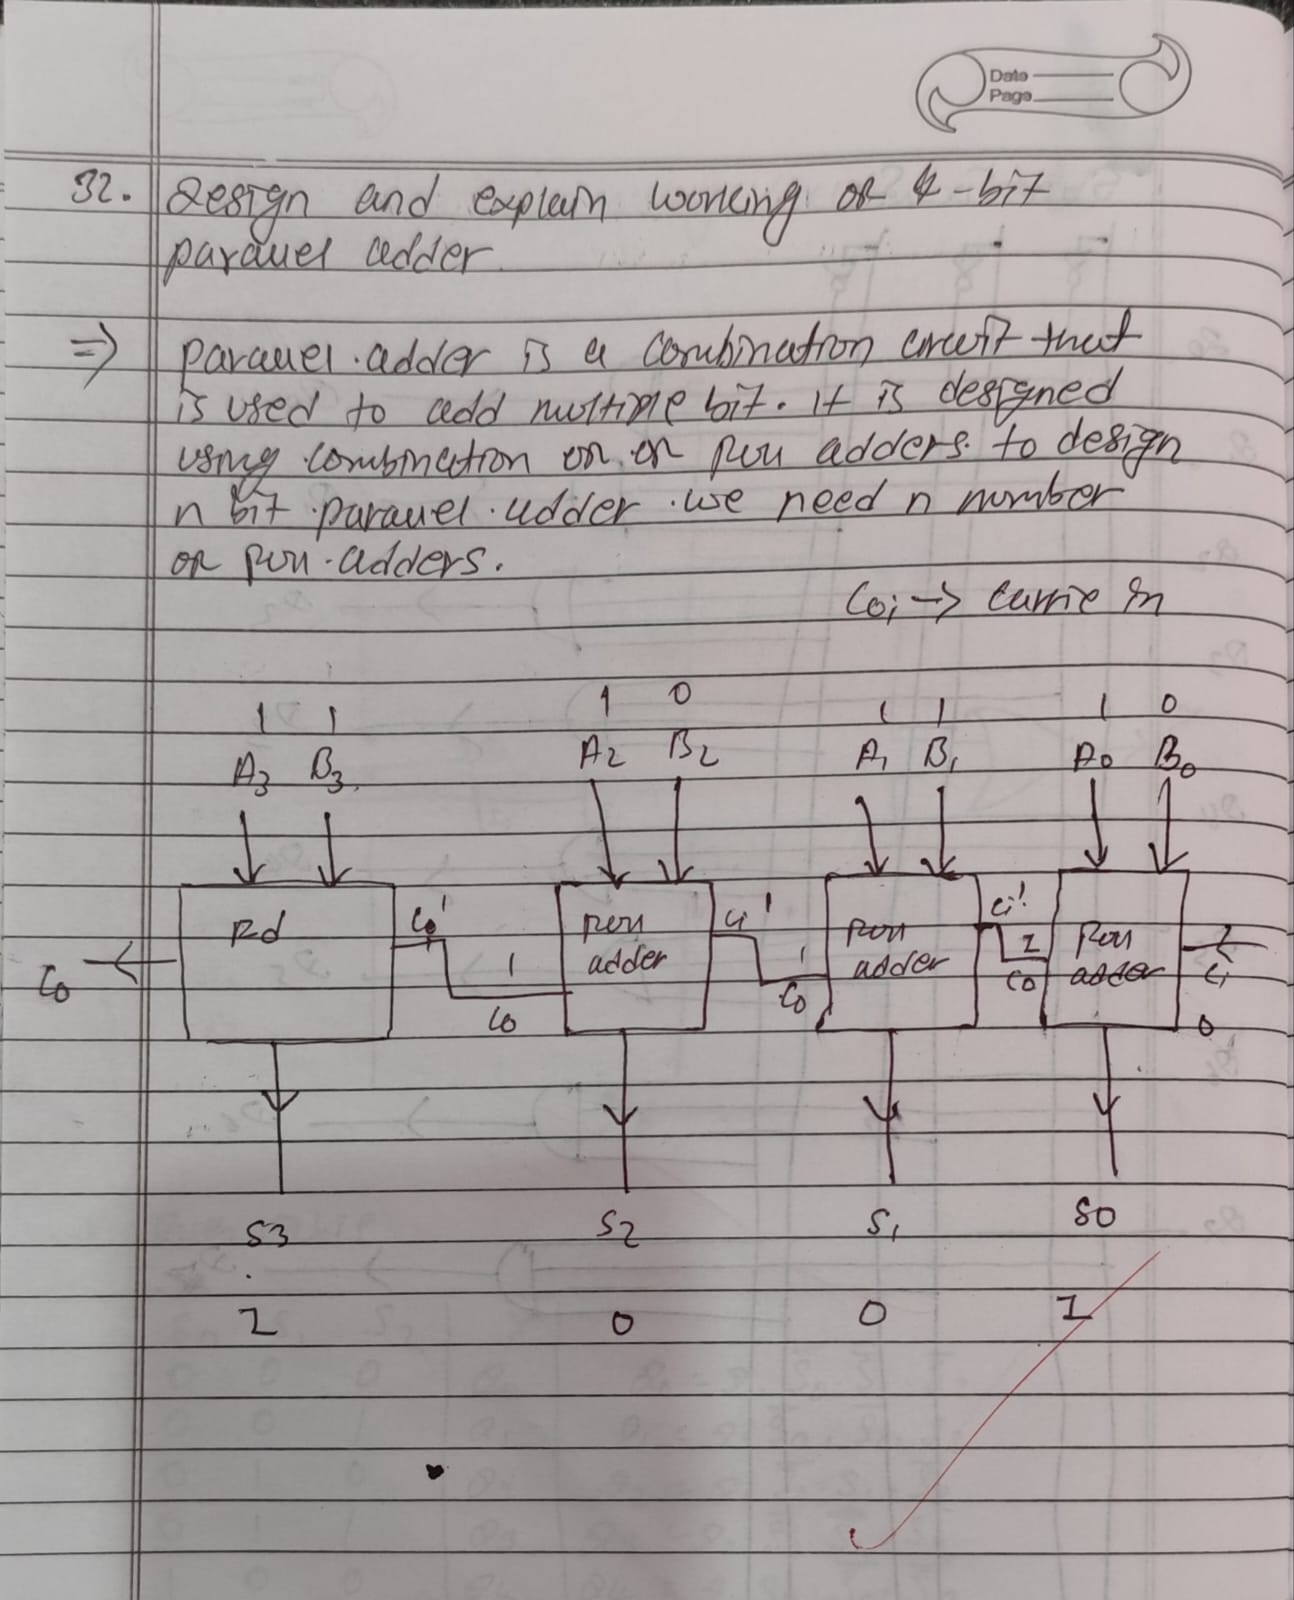 Date
Page
32. Design and explain working of 4-bit
parallel adder.
⇒ parallel adder is a combination circuit that
is used to add multiple bit. it is designed
using combination of full adders. to design
n bit parallel adder we need n number
of full adders.
Coi → carrie in
1 1 1 0 1 1 1 0
A3 B3 A2 B2 A1 B1 A0 B0
Co Fd Ci 1 1 Co full adder Ci 1 1 Co full adder Ci 1 1 Co full adder Ci 0
S3 S2 S1 S0
1 0 0 1